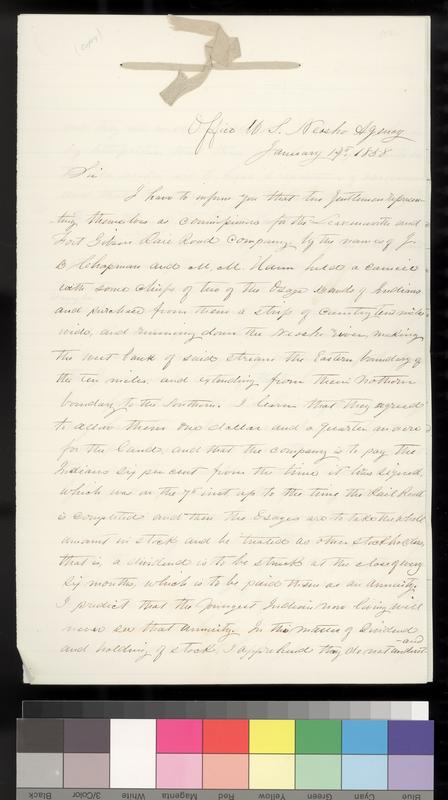 (copy)
Office U. S. Neosho Agency
January 19th 1858
Sir
I have to inform you that two gentlemen represen-
-ting themselves as commissioners for the Leavenworth and
Fort Gibson Rail Road Company, by the names of J.
B Chapman and M. M. Hann held a council
with some chiefs of two of the Osage bands of Indians
and purchased from them a strip of country ten miles
wide, and running down the Neosho river, making
the west bank of said stream the Eastern boundary of
the ten miles, and extending from their Nothern
boundary to the Southern. I learn that they agreed
to allow them one dollar and a quarter an acre
for the land, and that the company is to pay the
Indians Six per cent from the time it was signed,
which was on the 7th inst up to the time the Rail Road
is completed and then the Osages are to take the whole
amount in stock and be treated as other stockholders,
that is, a dividend is to be struck at the close of every
Six months, which is to be paid them as an annuity.
I predict that the youngest Indian now living will
never see that annuity. In the matter of dividend
and holding of stock, I apprehend they do not underst-
-and
Black
3/Color
White
Magenta
Red
Yellow
Green
Cyan
Blue